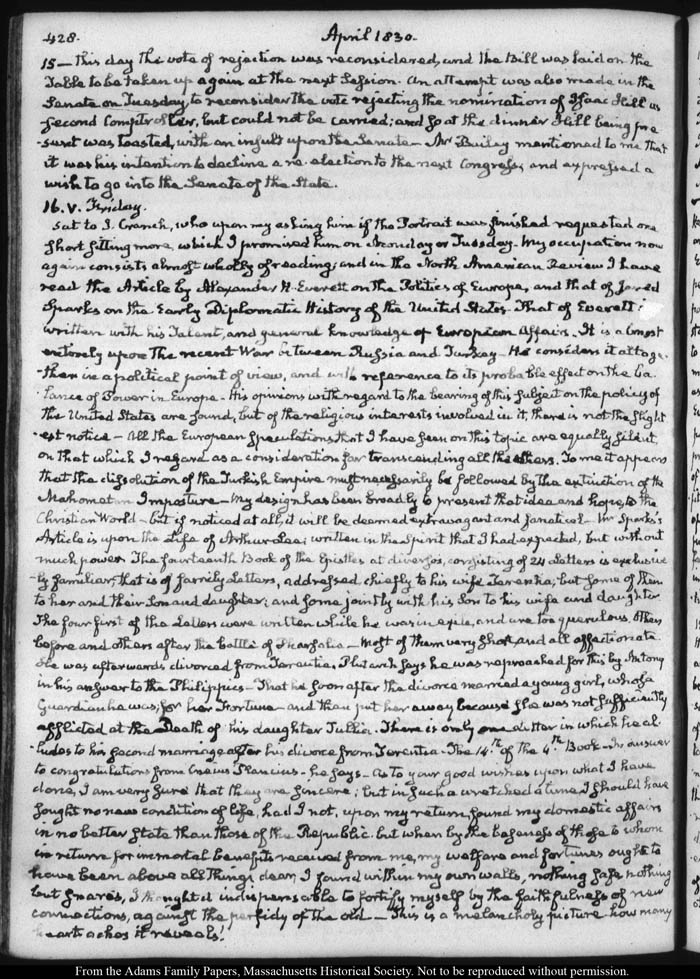 428. April 1830.
15 — this day the vote of rejection was reconsidered, and the Bill was laid on the
Table to be taken up again at the next Session. An attempt was also made in the
Senate on Tuesday, to reconsider the vote rejecting the nomination of Isaac Hill as
second Comptroller, but could not be carried; and so at the dinner Hill being pre
-sent was toasted, with an insult upon the Senate — Mr Bailey mentioned to me that
it was his intention to decline a re-election to the next Congress, and expressed a
wish to go into the Senate of the State.
16. V. Friday.
Sat to J. Cranch, who upon my asking him if the Portrait was finished requested one
short sitting more, which I promised him on Monday or Tuesday. My occupation now
again consists almost wholly of reading; and in the North American Review I have
read the Article by Alexander H. Everett on the Politics of Europe, and that of Jared
Sparks on the Early Diplomatic History of the United States. That of Everett is
written with his Talent, and general knowledge of European Affairs. It is almost
entirely upon the recent War between Russia and Turkey — He considers it altoge-
ther in a political point of view, and with reference to its probable effect on the ba
-lance of Power in Europe — His opinions with regard to the bearing of this subject on the policy of
the United States are sound, but of the religious interests involved in it, there is not the slight
-est notice — All the European speculations that I have seen on this topic are equally silent,
on that which I regard as a consideration far transcending all the others. To me it appears
that the dissolution of the Turkish Empire must necessarily be followed by the extinction of the
Mahometan Imposture — My design has been broadly to present that idea and hope, to the
Christian World — but if noticed at all, it will be deemed extravagant and fanatical — Mr Sparks's
Article is upon the Life of Arthur Lee; written in the spirit that I had expected, but without
much power. The fourteenth Book of the Epistles ad diversos, consisting of 24 Letters is exclusive
-ly familiar, that is of family Letters, addressed chiefly to his wife Terentia; but some of them
to her and their Son and daughter, and some jointly with his Son to his wife and daughter.
The four first of the Letters were written while he was in exile, and are too querulous. Others
before and others after the battle of Pharsalia — Most of them very short and all affectionate.
He was afterwards divorced from Terentia. Plutarch says he was reproached for this by Antony
in his answer to the Philippics — That he soon after the divorce married a young girl, whose
Guardian he was, for her Fortune — and then put her away because she was not sufficiently
afflicted at the Death of his daughter Tullia. There is only one Letter in which he al-
-ludes to his second marriage after his divorce from Terentia. The 14th. of the 4th. Book — In answer
to congratulations from Cneius Plancius — he says — As to your good wishes upon what I have
done, I am very sure that they are sincere; but in such a wretched time, I should have
sought no new condition of life, had I not, upon my return found my domestic affairs
in no better state than those of the Republic. but when by the baseness of those to whom
in return for immortal benefits received from me, my welfare and fortunes ought to
have been above all things dear, I found within my own walls, nothing safe, nothing
but snares, I thought it indispensable to fortify myself by the faithfulness of new
connections, against the perfidy of the old — This is a melancholy picture. how many
heart aches it reveals!
From the Adams Family Papers, Massachusetts Historical Society. Not to be reproduced without permission.